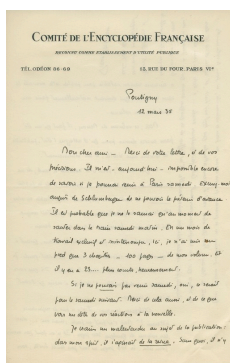 COMITÉ DE L'ENCYCLOPÉDIE FRANÇAISE
RECONNU COMME ÉTABLISSEMENT D'UTILITÉ PUBLIQUE
TÉL. ODÉON 86-60
13, RUE DU FOUR, PARIS VIᵉ
Pontigny
12 mars 36
Mon cher ami — Merci de votre lettre, et de vos
précisions. Il m'est — aujourd'hui — impossible encore
de savoir si je pourrai venir à Paris samedi. Excusez-moi
auprès de Schlumberger de ne pouvoir le prévenir d'avance.
Il est probable que je ne le saurai qu'au moment de
sauter dans le train samedi matin. En un mois de
travail exclusif et ininterrompu, ici, je n'ai mis au
point que 3 chapitres — 100 pages — de mon volume. Et
il y en a 23... plus courts, heureusement.
Si je ne pouvais pas venir samedi, oui, ce serait
pour le samedi suivant. Merci de cela aussi, et de ce que
vous me dites de vos réactions à la nouvelle.
Je crains un malentendu au sujet de la publication:
dans mon esprit, il s'agissait de la revue. Sans quoi, il n'y a